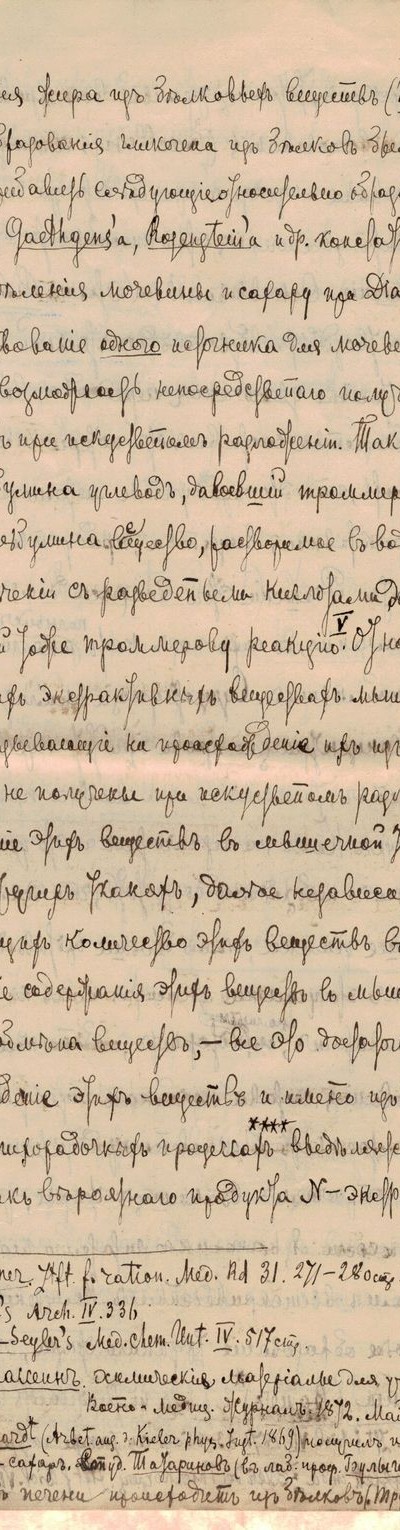 ія жира изъ бѣлковыхъ веществъ (
бразованія гликогена изъ бѣлковъ
слѣдующіе относительно обра
Gaethgens'a, Rosenstein'a и др. конста
дѣленія мочевины и сахару при Dia
вованіе одного источника для мочеве
возможность непосредственаго получ
ъ при искуственомъ разложеніи. Так
бумина углеводъ, дававшій троммер
альбумина вещество, растворимое въ во
ченіи съ разведеными кислотами д
й же троммерову реакцію. V Отно
хъ экстрактивныхъ веществахъ мыш
зывающіе на происхожденіе ихъ изъ
не получены при искуственомъ разл
іе этихъ веществъ въ мышечной
другихъ тканяхъ, далѣе независи
щихъ количество этихъ веществъ в
е содержанія этихъ веществъ въ мыш
обмѣна веществъ, — все это достаточ
деніе этихъ веществъ и именно изъ
лихорадочныхъ процессахъ **** выдѣляетс
какъ вѣроятнаго продукта N-экстр
ner. Zft. f. ration. Med. Bd 31. 271-280 стр.
's Arch. IV. 336
-Seyler's Med. chem. Unt. IV. 517 стр.
химическіе матеріалы для
Военно-медиц. Журналъ, 1872. Май
(Arbet. aus. d. Kieler phys. Inst. 1869) получилъ
-сахаръ. Студ. Тазариновъ (въ лаб. проф.
ъ печени происходитъ изъ бѣлковъ.